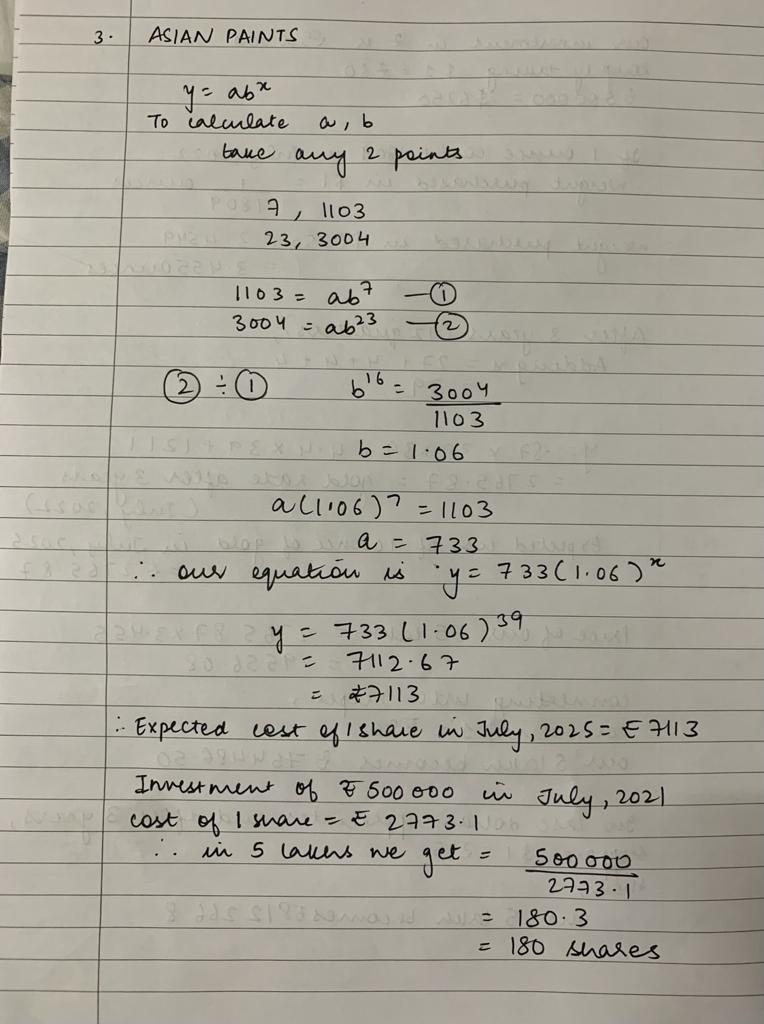 3. ASIAN PAINTS
y = abˣ
To calculate a, b
take any 2 points
7, 1103
23, 3004
1103 = ab⁷ —①
3004 = ab²³ —②
② ÷ ① b¹⁶ = 3004
1103
b = 1.06
a(1.06)⁷ = 1103
a = 733
∴ our equation is y = 733(1.06)ˣ
y = 733(1.06)³⁹
= 7112.67
= ₹7113
∴ Expected cost of 1 share in July, 2025 = ₹7113
Investment of ₹500000 in July, 2021
cost of 1 share = ₹ 2773.1
∴ in 5 lakhs we get = 500000
2773.1
= 180.3
= 180 shares